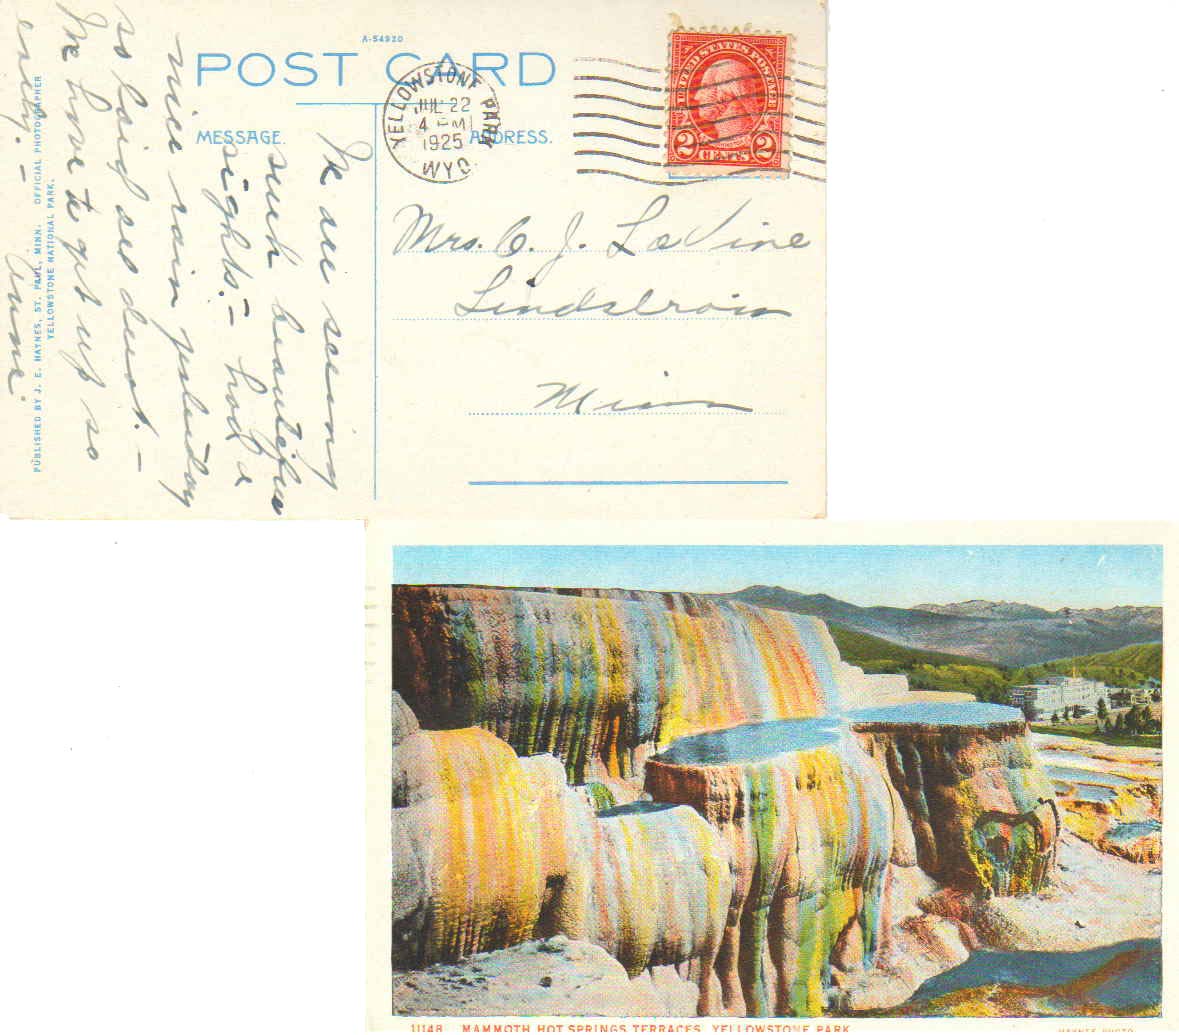 A-54920
POST CARD
MESSAGE.
ADDRESS.
YELLOWSTONE PARK
JUL 22
4 PM
1925
WYO.
UNITED STATES POSTAGE
2 CENTS 2
Mrs. C. J. LaVine
Lindstrom
Minn
We are seeing
such beautiful
sights. – had a
nice rain yesterday
so laid seo dust. –
We have to get up so
early. –
Anna.
PUBLISHED BY J. E. HAYNES, ST. PAUL, MINN. OFFICIAL PHOTOGRAPHER
YELLOWSTONE NATIONAL PARK.
11148 MAMMOTH HOT SPRINGS TERRACES, YELLOWSTONE PARK
HAYNES PHOTO